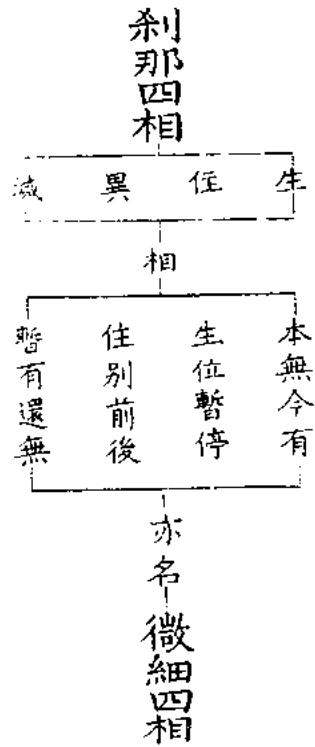 剎那四相
生
住
異
滅
相
本無今有
生位暫停
住別前後
暫有還無
亦名
微細四相